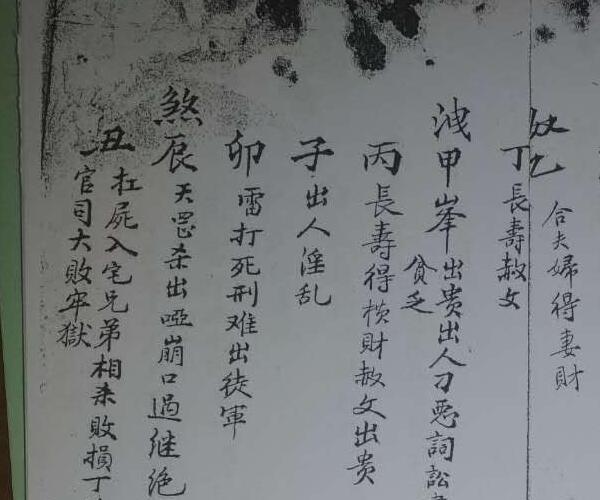 合夫婦得妻財
丁長壽赦文
洩甲峯出贵出人刁恶詞訟
貧乏
丙長壽得横財赦文出贵
子出人淫乱
卯雷打死刑难出徒軍
煞辰天罡杀出啞崩口過继绝
丑扛屍入宅兄弟相杀敗損丁
官司大敗牢獄